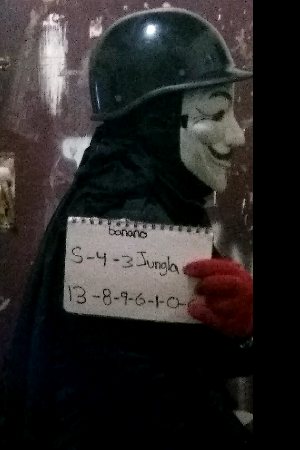 banano
S-4-3 Jungla
13-8-9-6-1-0-